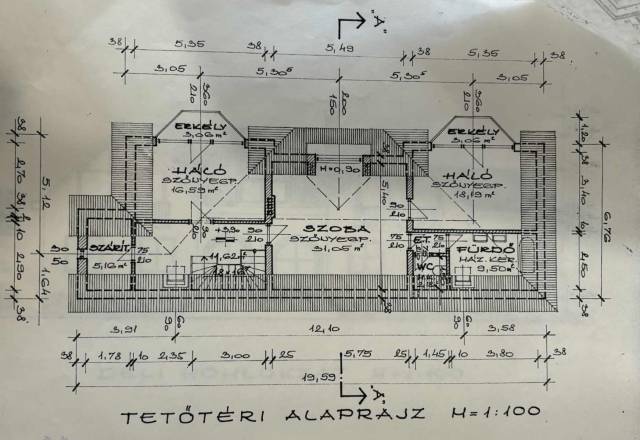 "A"
38 5,35 38 5,49 38 5,35 38
3,05 5,30⁵ 5,30⁵ 3,05
360
210
200
150
360
210
ERKÉLY
3,06 m²
ERKÉLY
3,06 m²
HÁLÓ
SZŐNYEGP.
16,59 m²
M=0,90
HÁLÓ
SZŐNYEGP.
18,19 m²
5,40
90
210
90
210
+3,90
90
210
SZOBA
SZŐNYEGP.
31,05 m²
75
210
E.T.
75
210
FÜRDŐ
HÁZ. KER.
9,50 m²
WC
SZÁRÍT.
5,16 m²
75
210
11,62
90
50
38 2,70 38 2,10 2,90 38
5,12 1,64
1,20 38 3,40 10 2,50 38
6,76
60
90
60
90
3,91 12,10 3,58
38 1,78 10 2,35 3,00 25 5,75 25 1,45 10 3,80 38
19,59
"A"
TETŐTÉRI ALAPRAJZ M=1:100